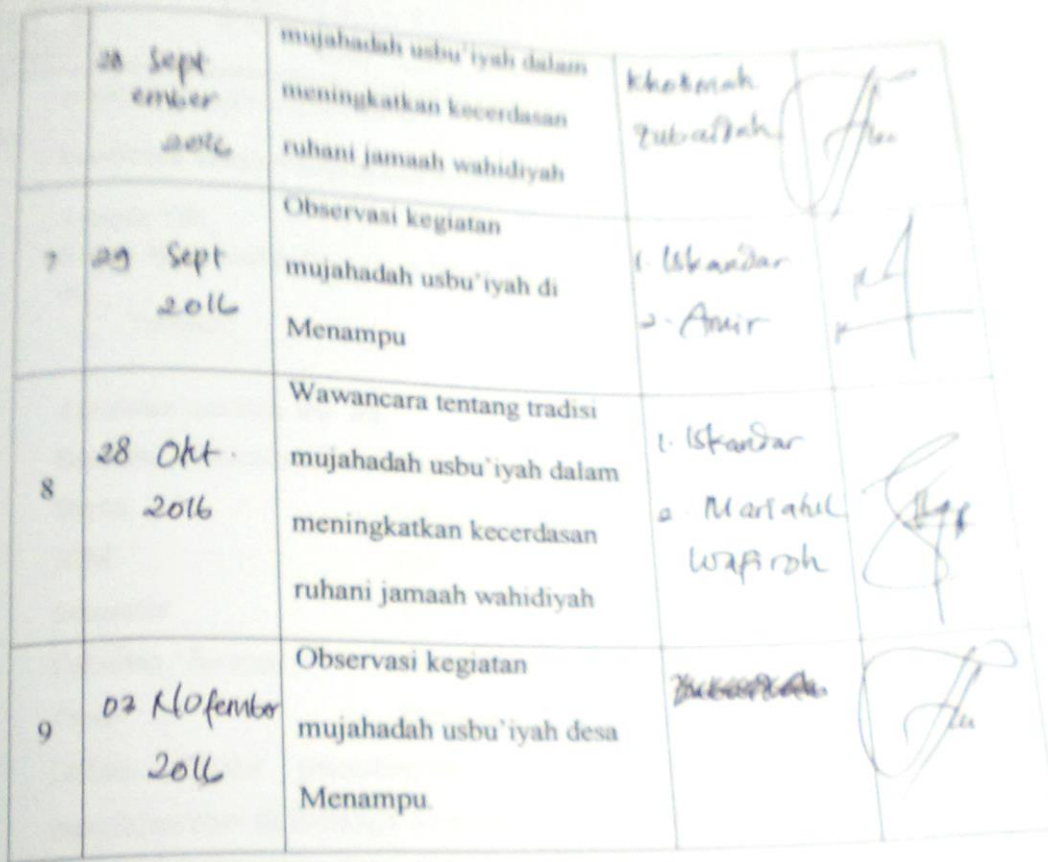 28 Sept
ember
2016
mujahadah usbu'iyah dalam
meningkatkan kecerdasan
ruhani jamaah wahidiyah
Khotimah
Zubaidah
7
29 Sept
2016
Observasi kegiatan
mujahadah usbu'iyah di
Menampu
1. Iskandar
2. Amir
8
28 Okt.
2016
Wawancara tentang tradisi
mujahadah usbu'iyah dalam
meningkatkan kecerdasan
ruhani jamaah wahidiyah
1. Iskandar
2. Mariatul
Wafiroh
9
Nofember
2016
Observasi kegiatan
mujahadah usbu'iyah desa
Menampu.